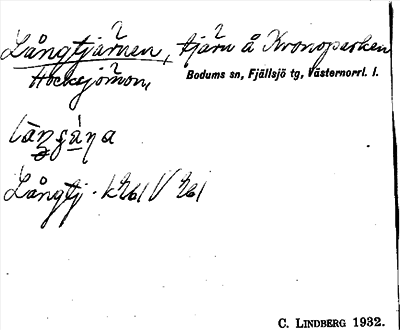 Långtjärnen, tjärn å Kronoparken
Hocksjömon,
Bodums sn, Fjällsjö tg, Västernorrl. l.
Långtj.
C. LINDBERG 1932.